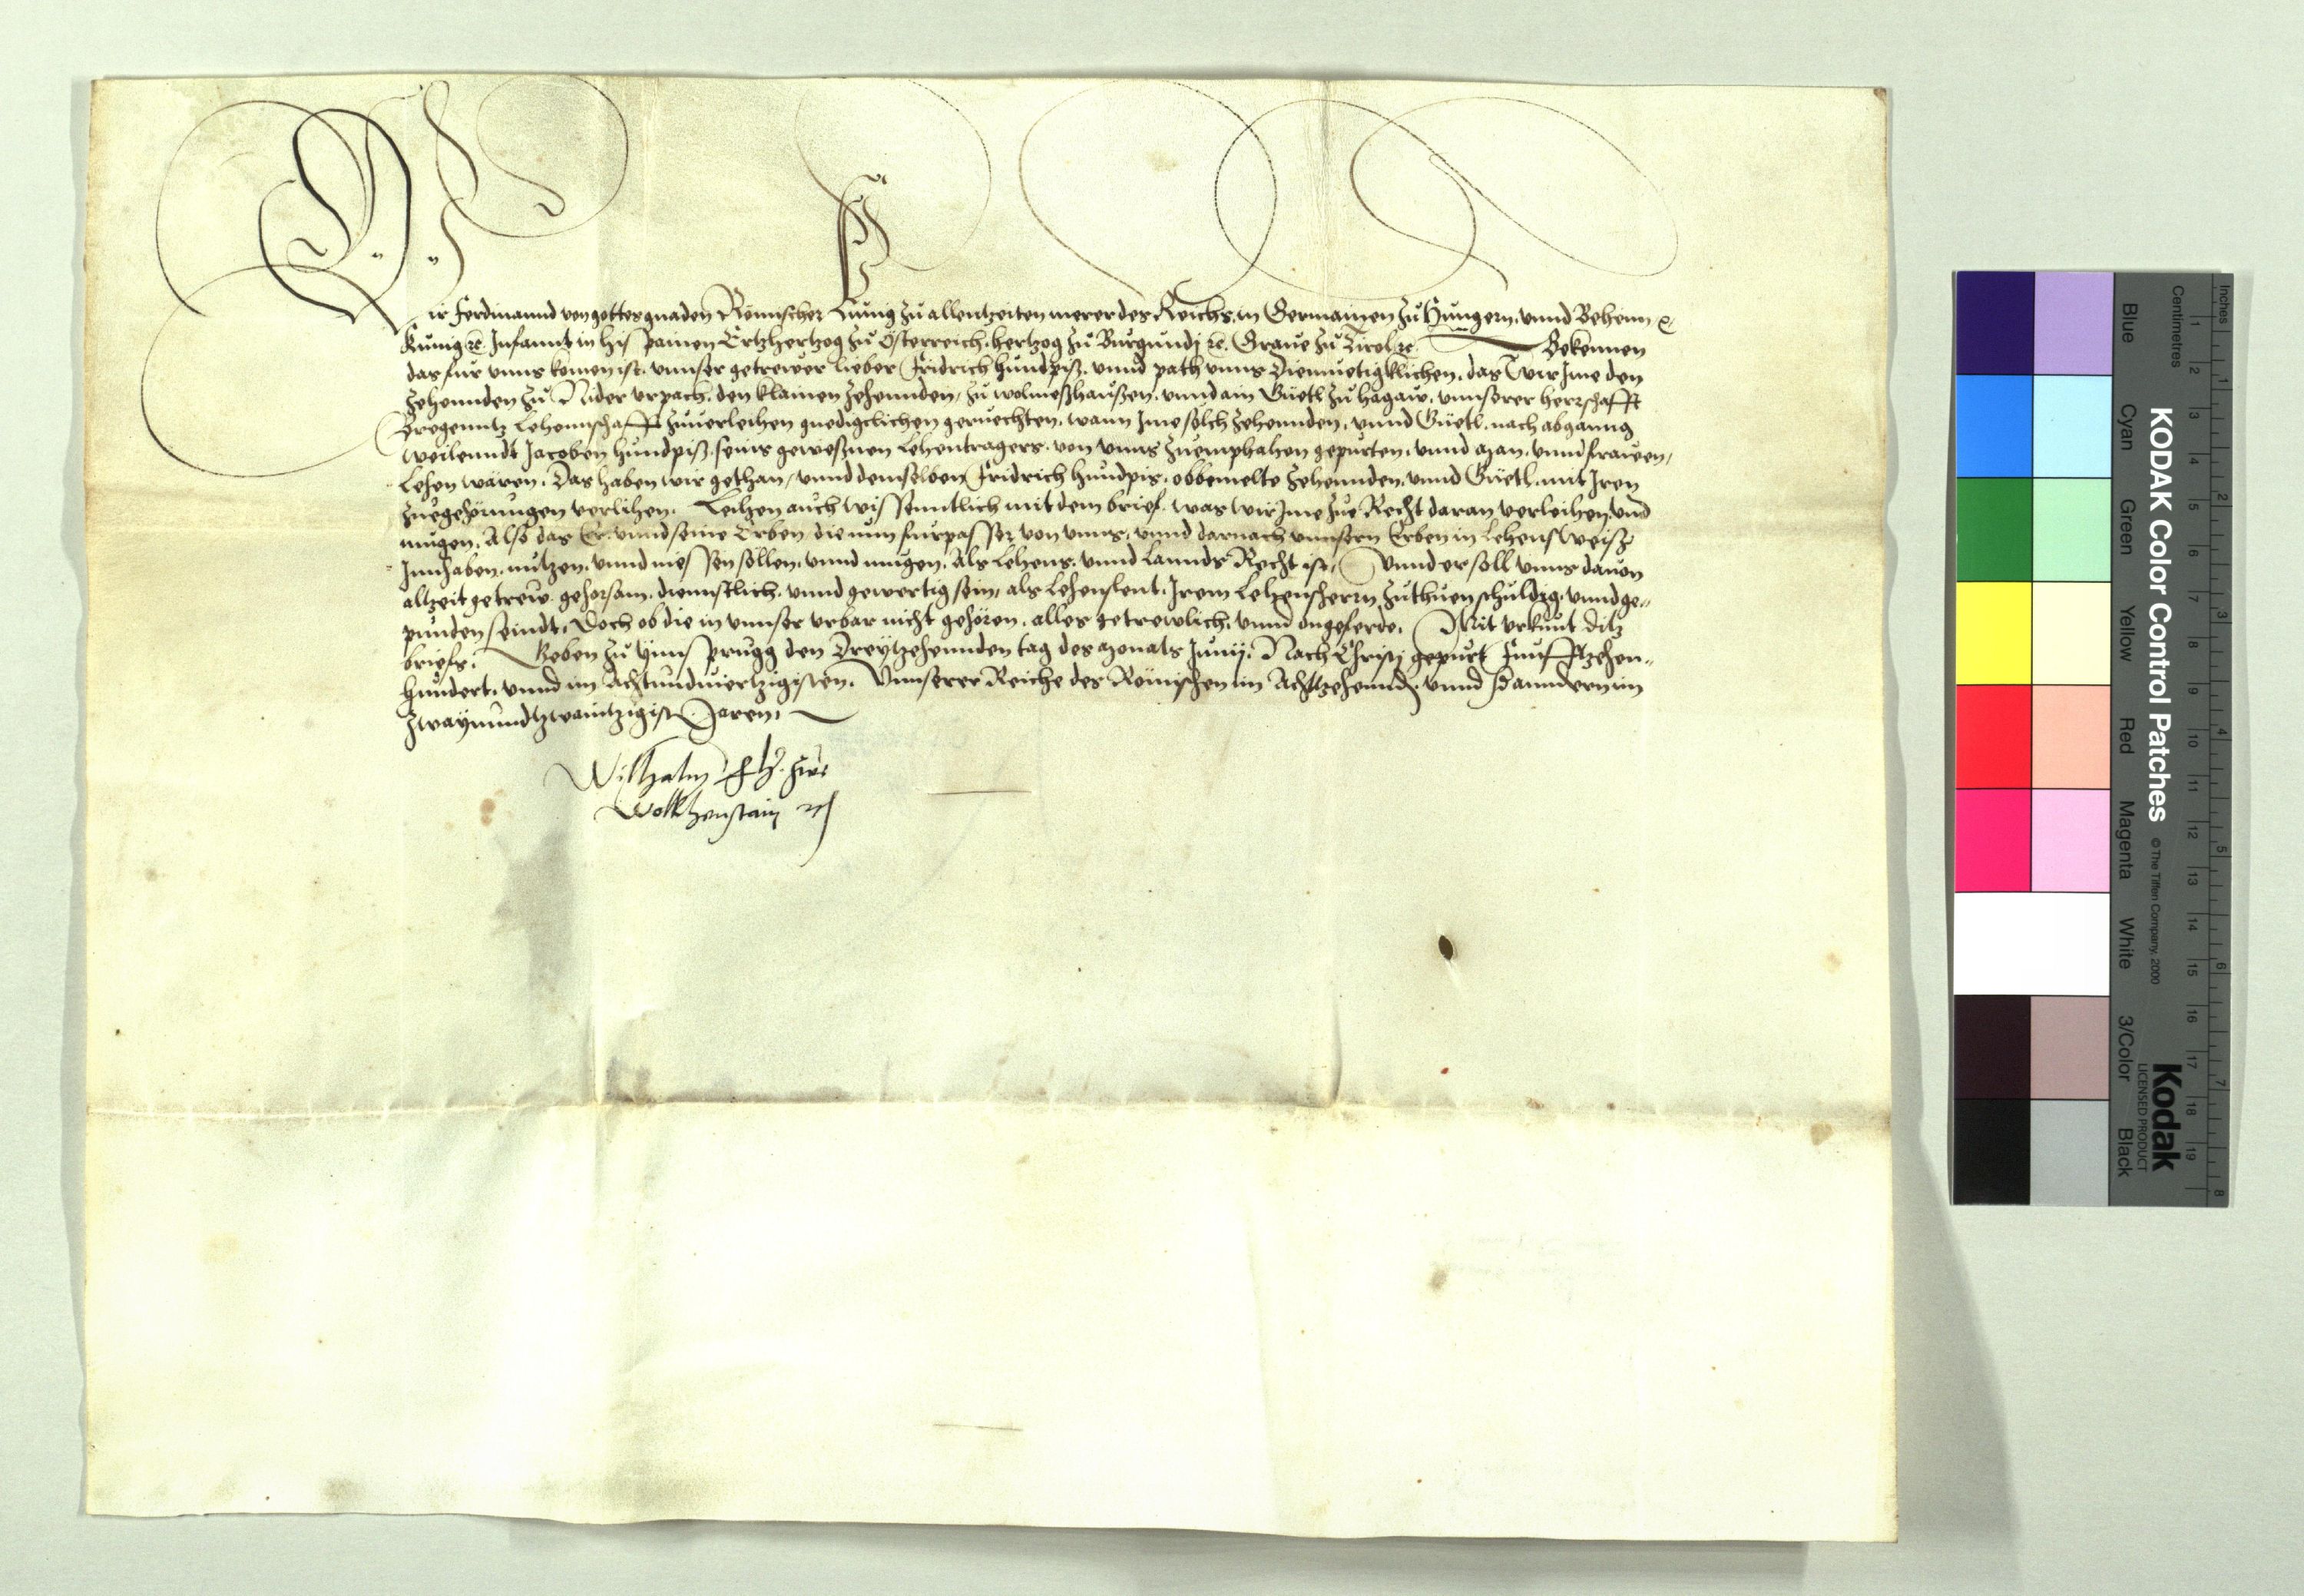 Wir Ferdinannd von gottes gnaden Römischer Kunig zu allentzeiten merer des Reichs, in Germanien zu Hungern, vnnd Beheim ꝛc.
Kunig ꝛc. Infannt in Hispanien Ertzhertzog zu Österreich, hertzog zu Burgundj ꝛc. Graue zu Tirol ꝛc. Bekennen
das fur vnns komen ist, vnnser getrewer lieber Fridrich Hundpiß, vnnd path vnns Diemuetigklichen, das Wir Ime den
Zehennden zu Nider vrpach, den klainen Zehennden, zu wolmeßhaußen, vnnd ain Güetl zu hagaw, vnnserer herrschafft
Bregenntz Lehennschafft zuuerleihen gnedigclichen geruechten, wann Ime solch Zehennden, vnnd Güetl, nach abganng
weilenndt Jacoben Hundpiß, seins geweßnen Lehentragers, von vnns zuemphahen gepurten, vnnd Man, vnnd frawen,
Lehen wären. Das haben wir gethan, vnnd demselben Fridrich Hundpis, obbemelte Zehennden, vnnd Güetl, mit Iren
zuegehörungen verlihen. Leihen auch wissenntlich mit dem brief, was wir Ime zue Recht daran verleihen, vnd
mugen, Also das Er, vnnd seine Erben die nun furpasser von vnns, vnnd darnach vnnsern Erben in Lehens Weiß
Innhaben, nutzen, vnnd niessen sollen, vnnd mugen, Als Lehens, vnnd Lannds Recht ist, Vnnd er soll vnns dauon
altzeit getrew, gehorsam, diennstlich, vnnd gewertig sein, als Lehenslent, Irem Lehensherrn zuthuen schuldig, vnnd ge„
punden seindt, Doch ob die in vnnser vrbar nicht gehören, alles getrewlich, vnnd ongeferde, Mit vrkunt ditz
briefs. Geben zu Ynnsprugg den Dreytzehennden tag des Monats Junij, Nach Christj gepurt Funfftzehen„
hundert, vnnd im Achtundviertzigisten, Vnnserer Reiche des Römischen im Achtzehennd, vnnd der anndern im
Zwaynundtzwaintzigist Jaren,
Wilhalm Frh. zue
Wolkhenstain
KODAK Color Control Patches
© The Tiffen Company, 2000
Kodak
LICENSED PRODUCT
Blue Cyan Green Yellow Red Magenta White 3/Color Black
Centimetres 1 2 3 4 5 6 7 8 9 10 11 12 13 14 15 16 17 18 19
Inches 1 2 3 4 5 6 7 8